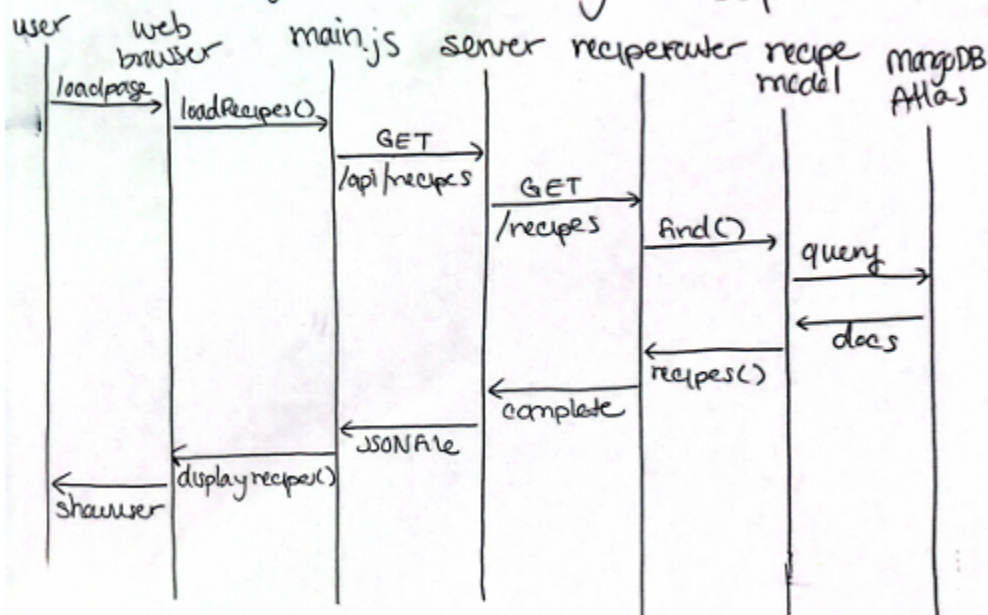 user
web
browser
main.js
server
reciperouter
recipe
model
MongoDB
Atlas
loadpage
loadRecipes()
GET
/api/recipes
GET
/recipes
find()
query
docs
recipes()
complete
JSONFile
displayrecipes()
showuser